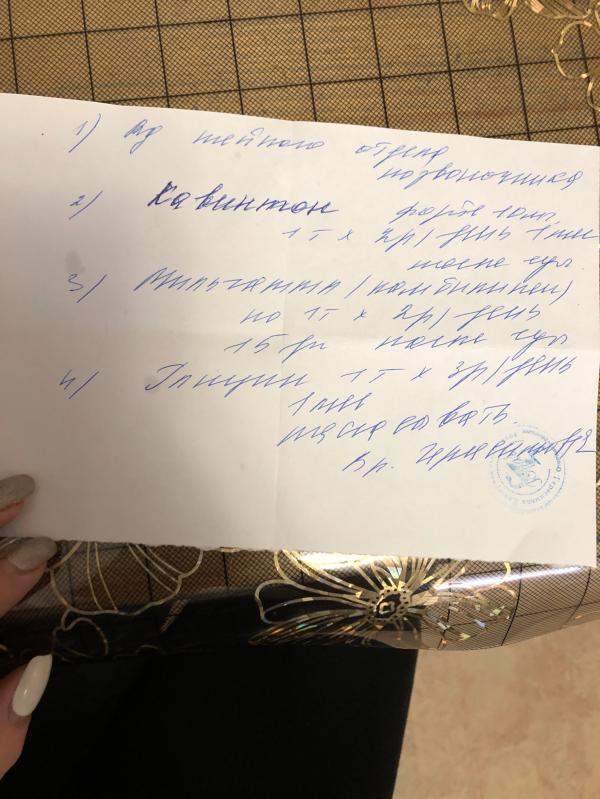 1) Rg шейного отдела
позвоночника
2) Кавинтон форте 10мг
1т х 2р/день 1мес
после еды
3) Мильгамма (комбилипен)
по 1т х 2р/день
15 дн после еды
4) Глицин 1т х 3р/день
1мес
рассасывать.
Вр.